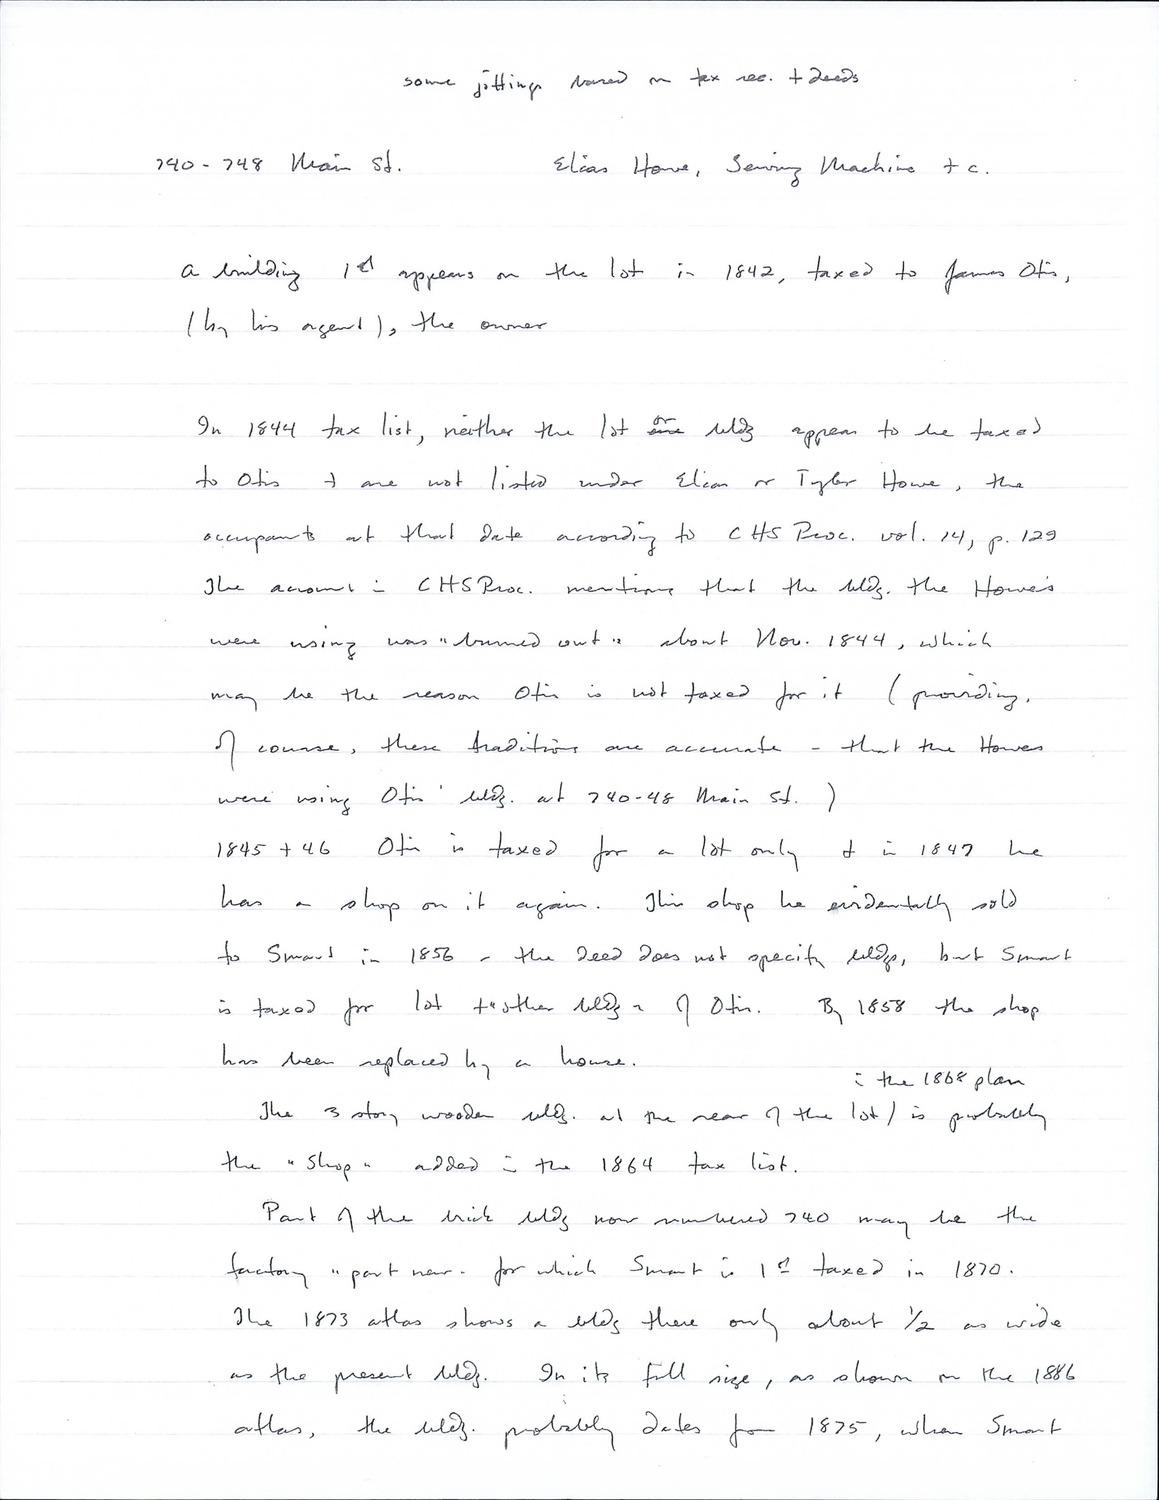 some jottings based on tax rec. + deeds
740-748 Main St. Elias Howe, Sewing Machine + c.
a building 1st appears on the lot in 1842, taxed to James Otis,
(by his agent), the owner
In 1844 tax list, neither the lot or bldg appear to be taxed
to Otis + are not listed under Elias or Tyler Howe, the
occupants at that date according to CHS Proc. vol. 14, p. 129
The account in CHS Proc. mentions that the bldg. the Howe's
were using was "burned out" about Nov. 1844, which
may be the reason Otis is not taxed for it (providing,
of course, these traditions are accurate - that the Howes
were using Otis' bldg. at 740-48 Main St.)
1845 + 46 Otis is taxed for a lot only & in 1847 he
has a shop on it again. This shop he evidentally sold
to Smart in 1856 - the deed does not specify bldgs, but Smart
is taxed for lot + "other bldg" of Otis. By 1858 the shop
has been replaced by a house.
in the 1868 plan
The 3 story wooden bldg. at the rear of the lot / is probably
the "shop" added in the 1864 tax list.
Part of the brick bldg now numbered 740 may be the
factory "part new" for which Smart is 1st taxed in 1870.
The 1873 atlas shows a bldg there only about 1/2 as wide
as the present bldg. In its full size, as shown on the 1886
atlas, the bldg. probably dates from 1875, when Smart